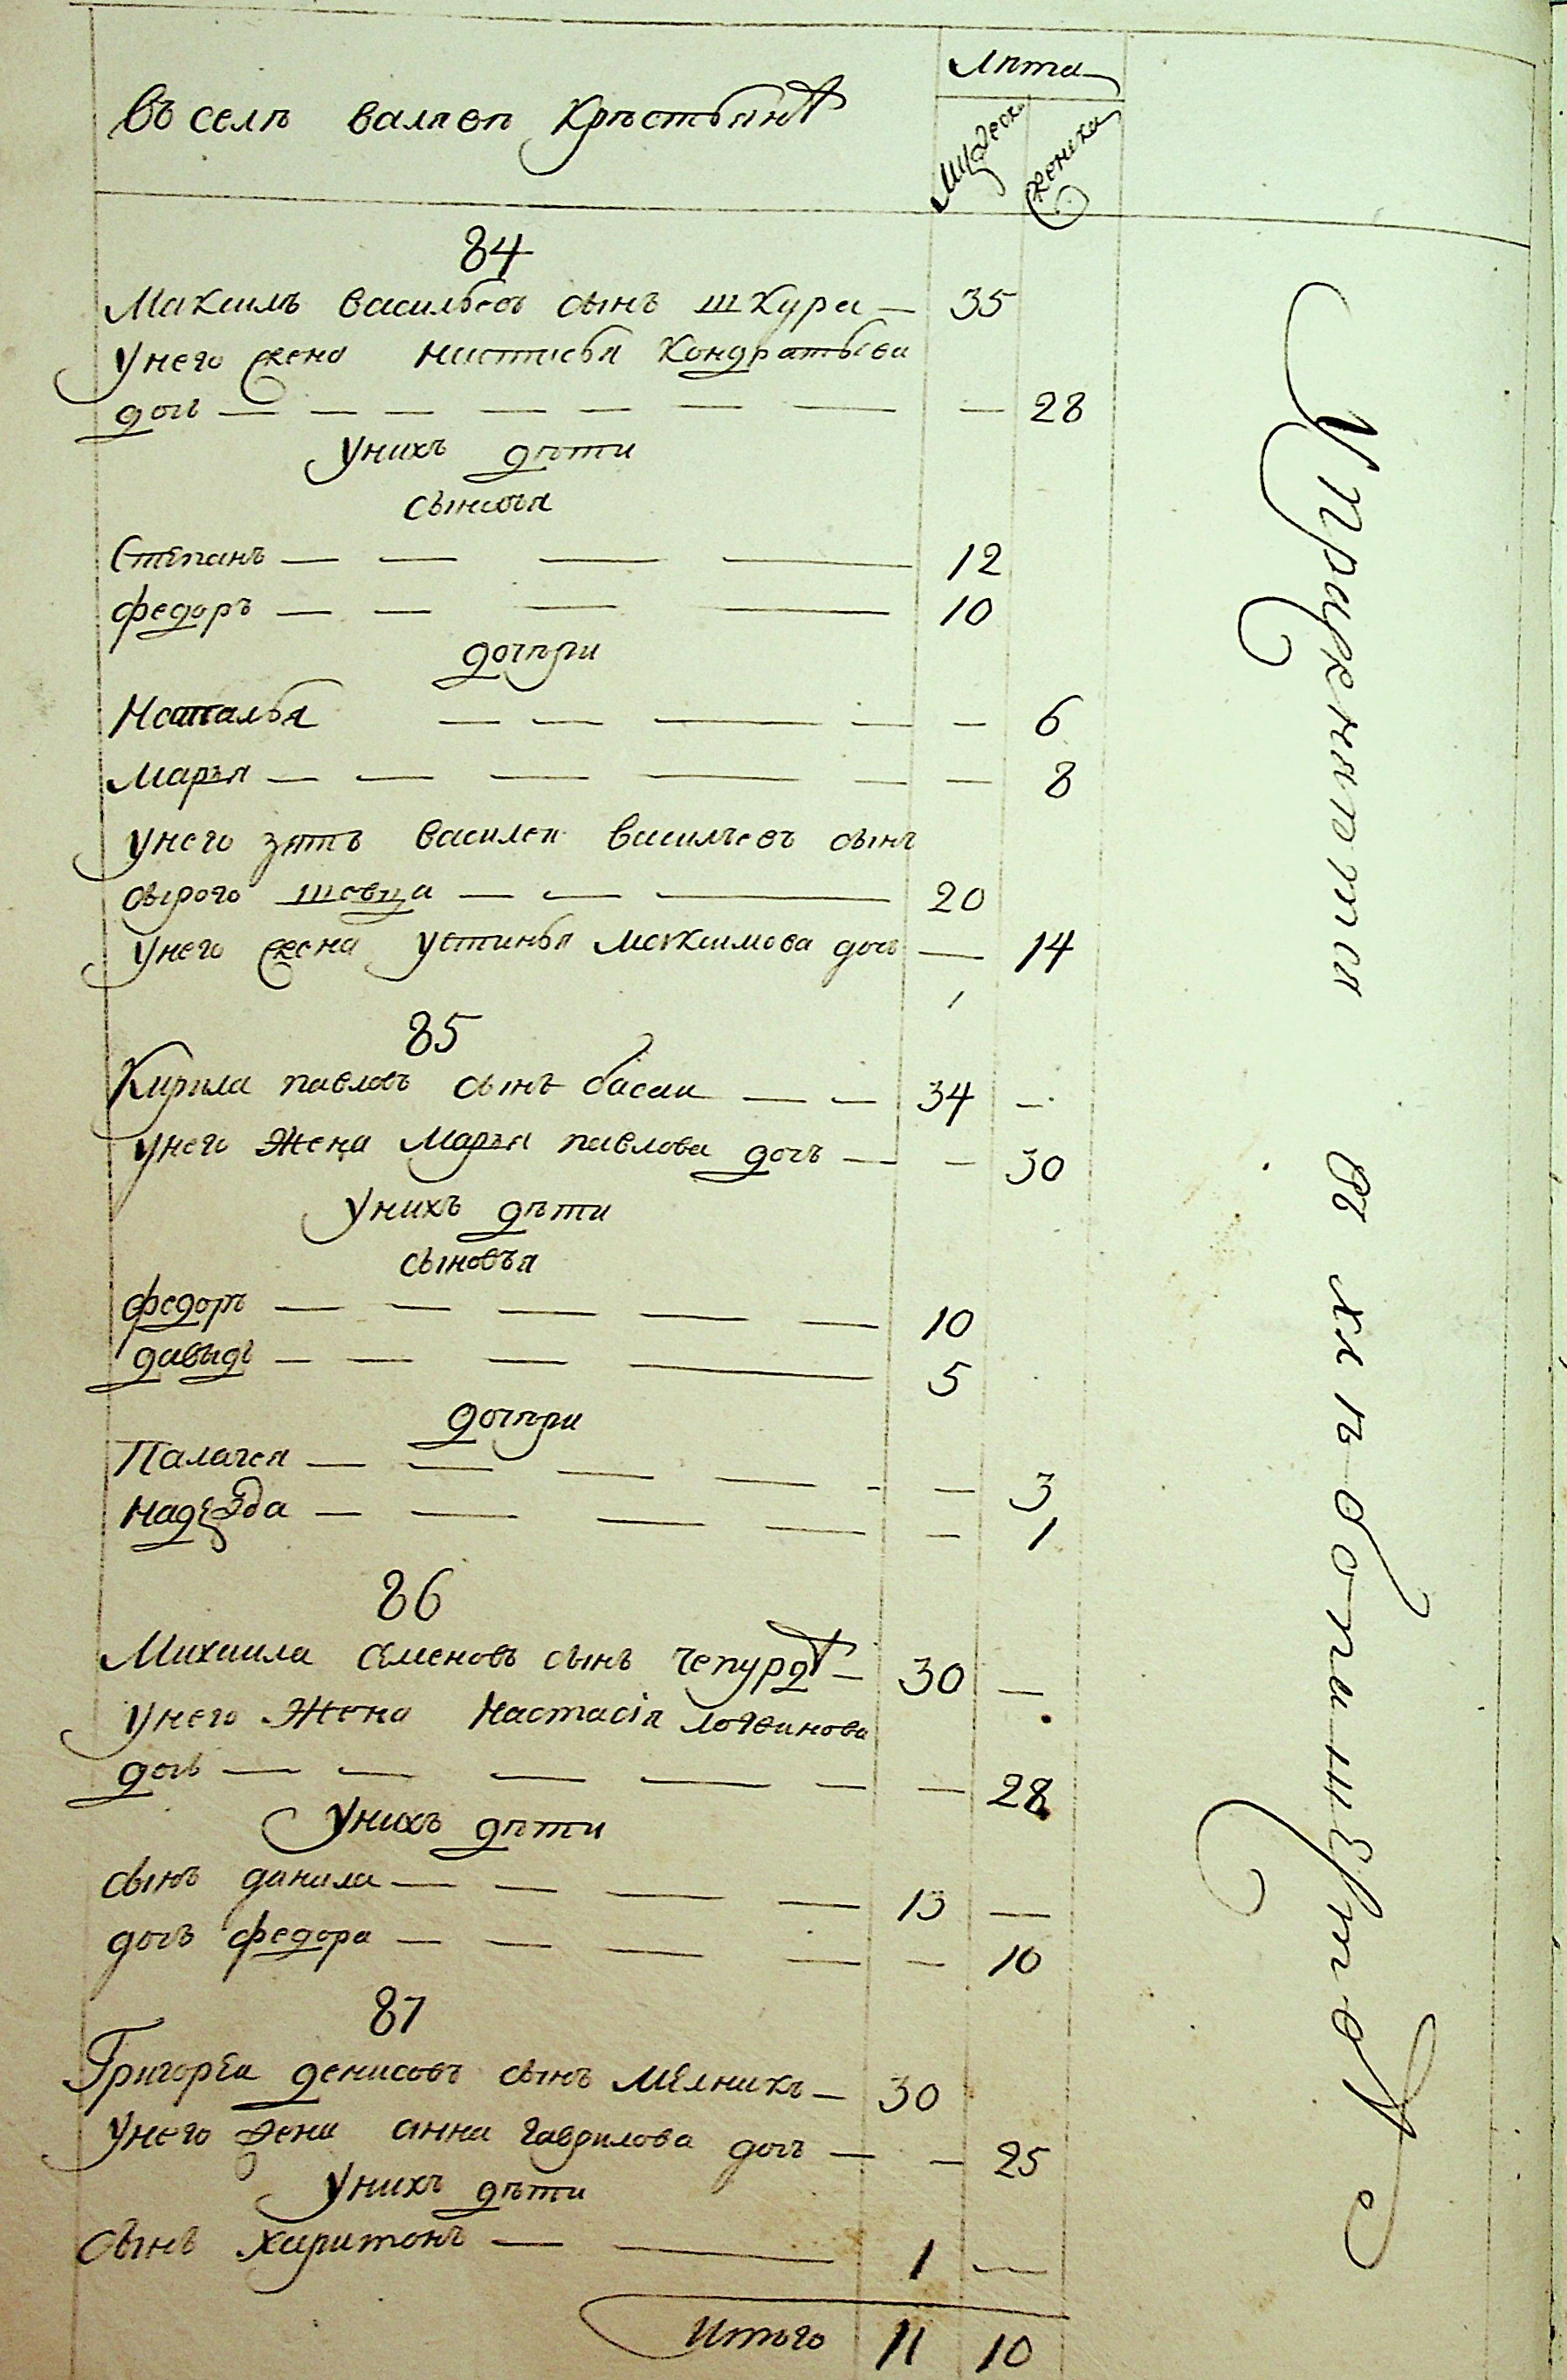 Въ селѣ валяве Крѣстьянъ
Лѣта
Мужеск
женска
84
Максимъ васильевъ сынъ шкура — 35
Унего жена Настасья Кондратьева
дочь — 28
Унихъ дѣти
сыновья
Степанъ — 12
федоръ — 10
дочѣри
Наталья — 6
Маръя — 8
унего зять василеи василъевъ сынъ
сырого шевца — 20
унего жена устинья Максимова дочь — 14
85
Кирила павловъ сынъ басаи — 34 —
унего жена Маръя павлова дочь — 30
Унихъ дѣти
сыновъя
федоръ — 10
давыдъ — 5
дочѣри
Палагея — 3
надежда — 1
86
Михаила семеновъ сынъ чепурда — 30 —
унего жена Настасія логвинова
дочь — 28
Унихъ дѣти
сынъ данила — 13 —
дочь федора — 10
87
Григореи денисовъ сынъ Мелникъ — 30
Унего жена анна гаврилова дочь — 25
Унихъ дѣти
сынъ харитонъ — 1 —
Итого 11 10
Упражняются в хлѣбопашествѣ